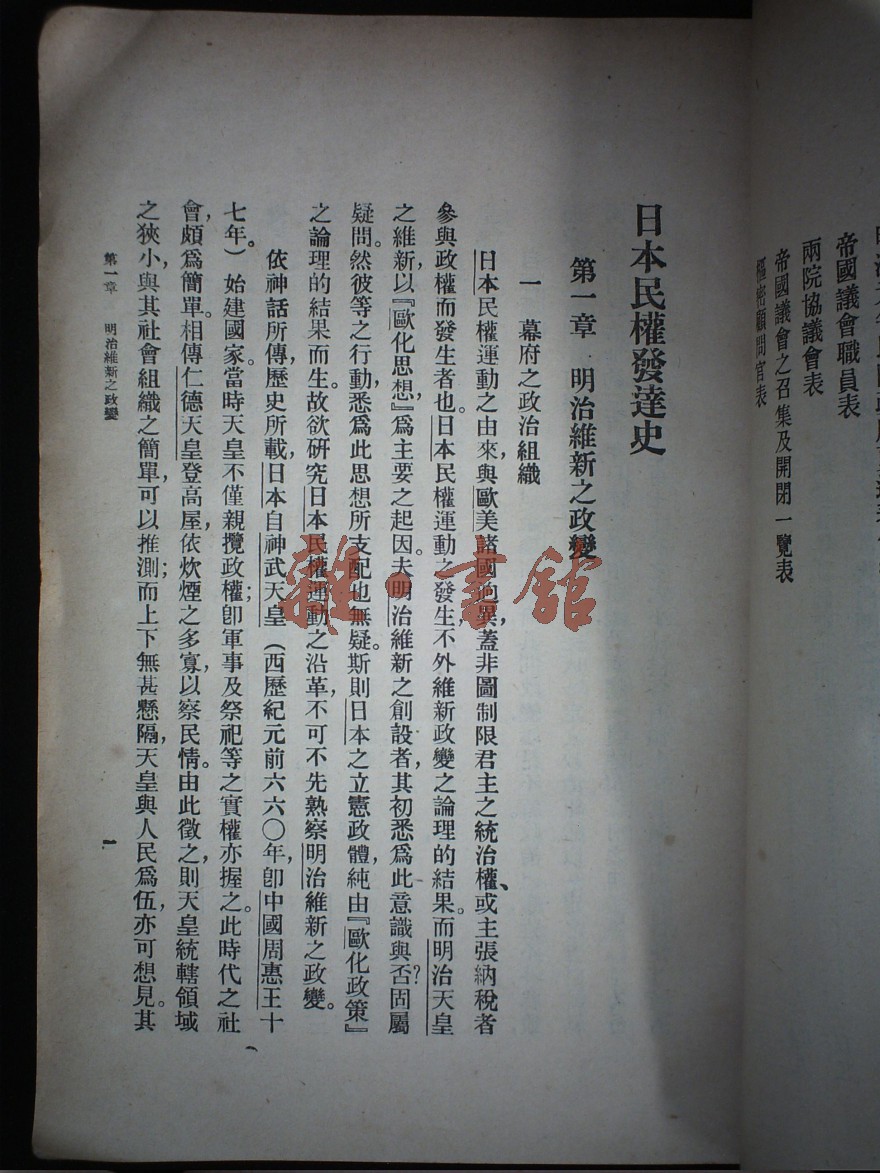 帝國議會職員表
兩院協議會表
帝國議會之召集及開閉一覽表
樞密顧問官表
日本民權發達史
第一章 明治維新之政變
一 幕府之政治組織
日本民權運動之由來,與歐美諸國迥異,蓋非圖制限君主之統治權、或主張納稅者
參與政權而發生者也。日本民權運動之發生,不外維新政變之論理的結果。而明治天皇
之維新,以『歐化思想』爲主要之起因。夫明治維新之創設者,其初悉爲此意識與否?固屬
疑問。然彼等之行動,悉爲此思想所支配也無疑。斯則日本之立憲政體,純由『歐化政策』
之論理的結果而生。故欲研究日本民權運動之沿革,不可不先熟察明治維新之政變。
依神話所傳,歷史所載,日本自神武天皇(西歷紀元前六六〇年,卽中國周惠王十
七年)始建國家。當時天皇不僅親攬政權;卽軍事及祭祀等之實權亦握之。此時代之社
會,頗爲簡單。相傳仁德天皇登高屋,依炊煙之多寡,以察民情。由此徵之,則天皇統轄領域
之狹小,與其社會組織之簡單,可以推測;而上下無甚懸隔,天皇與人民爲伍,亦可想見。其
第一章 明治維新之政變
一
雜·書館